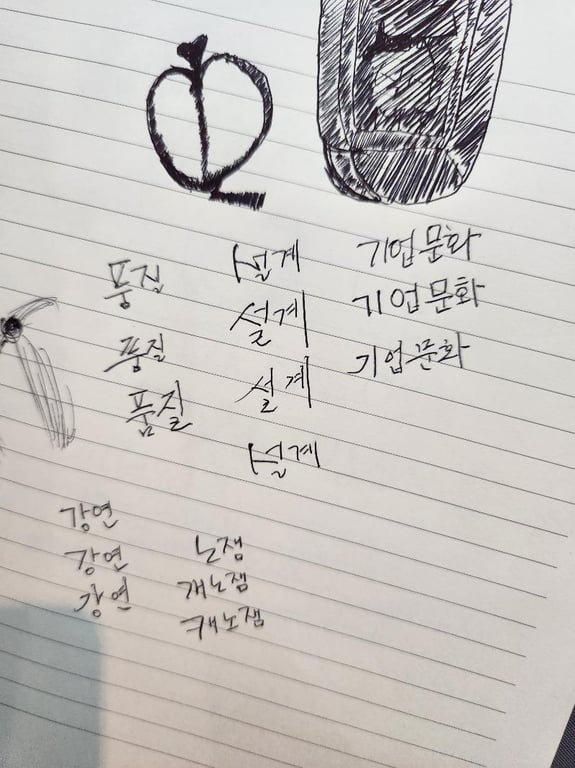 품질 설계 기업문화
품질 설계 기업문화
품질 설계 기업문화
설계
강연
강연 노잼
강연 개노잼
캐노잼